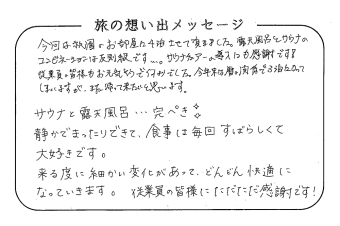 旅の想い出メッセージ
今回は祇園のお部屋に4泊させて頂きました。露天風呂とサウナの
コンビネーションは反則級です…。サウナチェアーの導入にも感謝です!
従業員の皆様もお元気そうで何よりでした。今年は暦の関係で3泊となって
しまいますが、また帰って来たいと思います。
サウナと露天風呂…完ぺき
静かでまったりできて、食事は毎回すばらしくて
大好きです。
来る度に細かい変化があって、どんどん快適に
なっていきます。 従業員の皆様にただただただ感謝です!